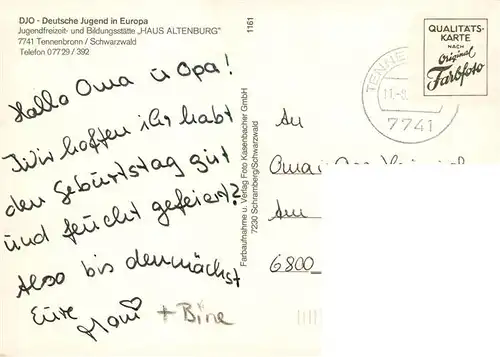 DJO - Deutsche Jugend in Europa
Jugendfreizeit- und Bildungsstätte „HAUS ALTENBURG"
7741 Tennenbronn / Schwarzwald
Telefon 07729 / 392
Hallo Oma u Opa!
Wir hoffen ihr habt
den Geburtstag gut
und feucht gefeiert?
Also bis demnächst
Eure
+ Bine
1161
Farbaufnahme u. Verlag Foto Kasenbacher GmbH
7230 Schramberg/Schwarzwald
QUALITÄTS-
KARTE
NACH
Original
Farbfoto
TENNE
11.-8.
7741
An
Oma u Opa
Am
6800